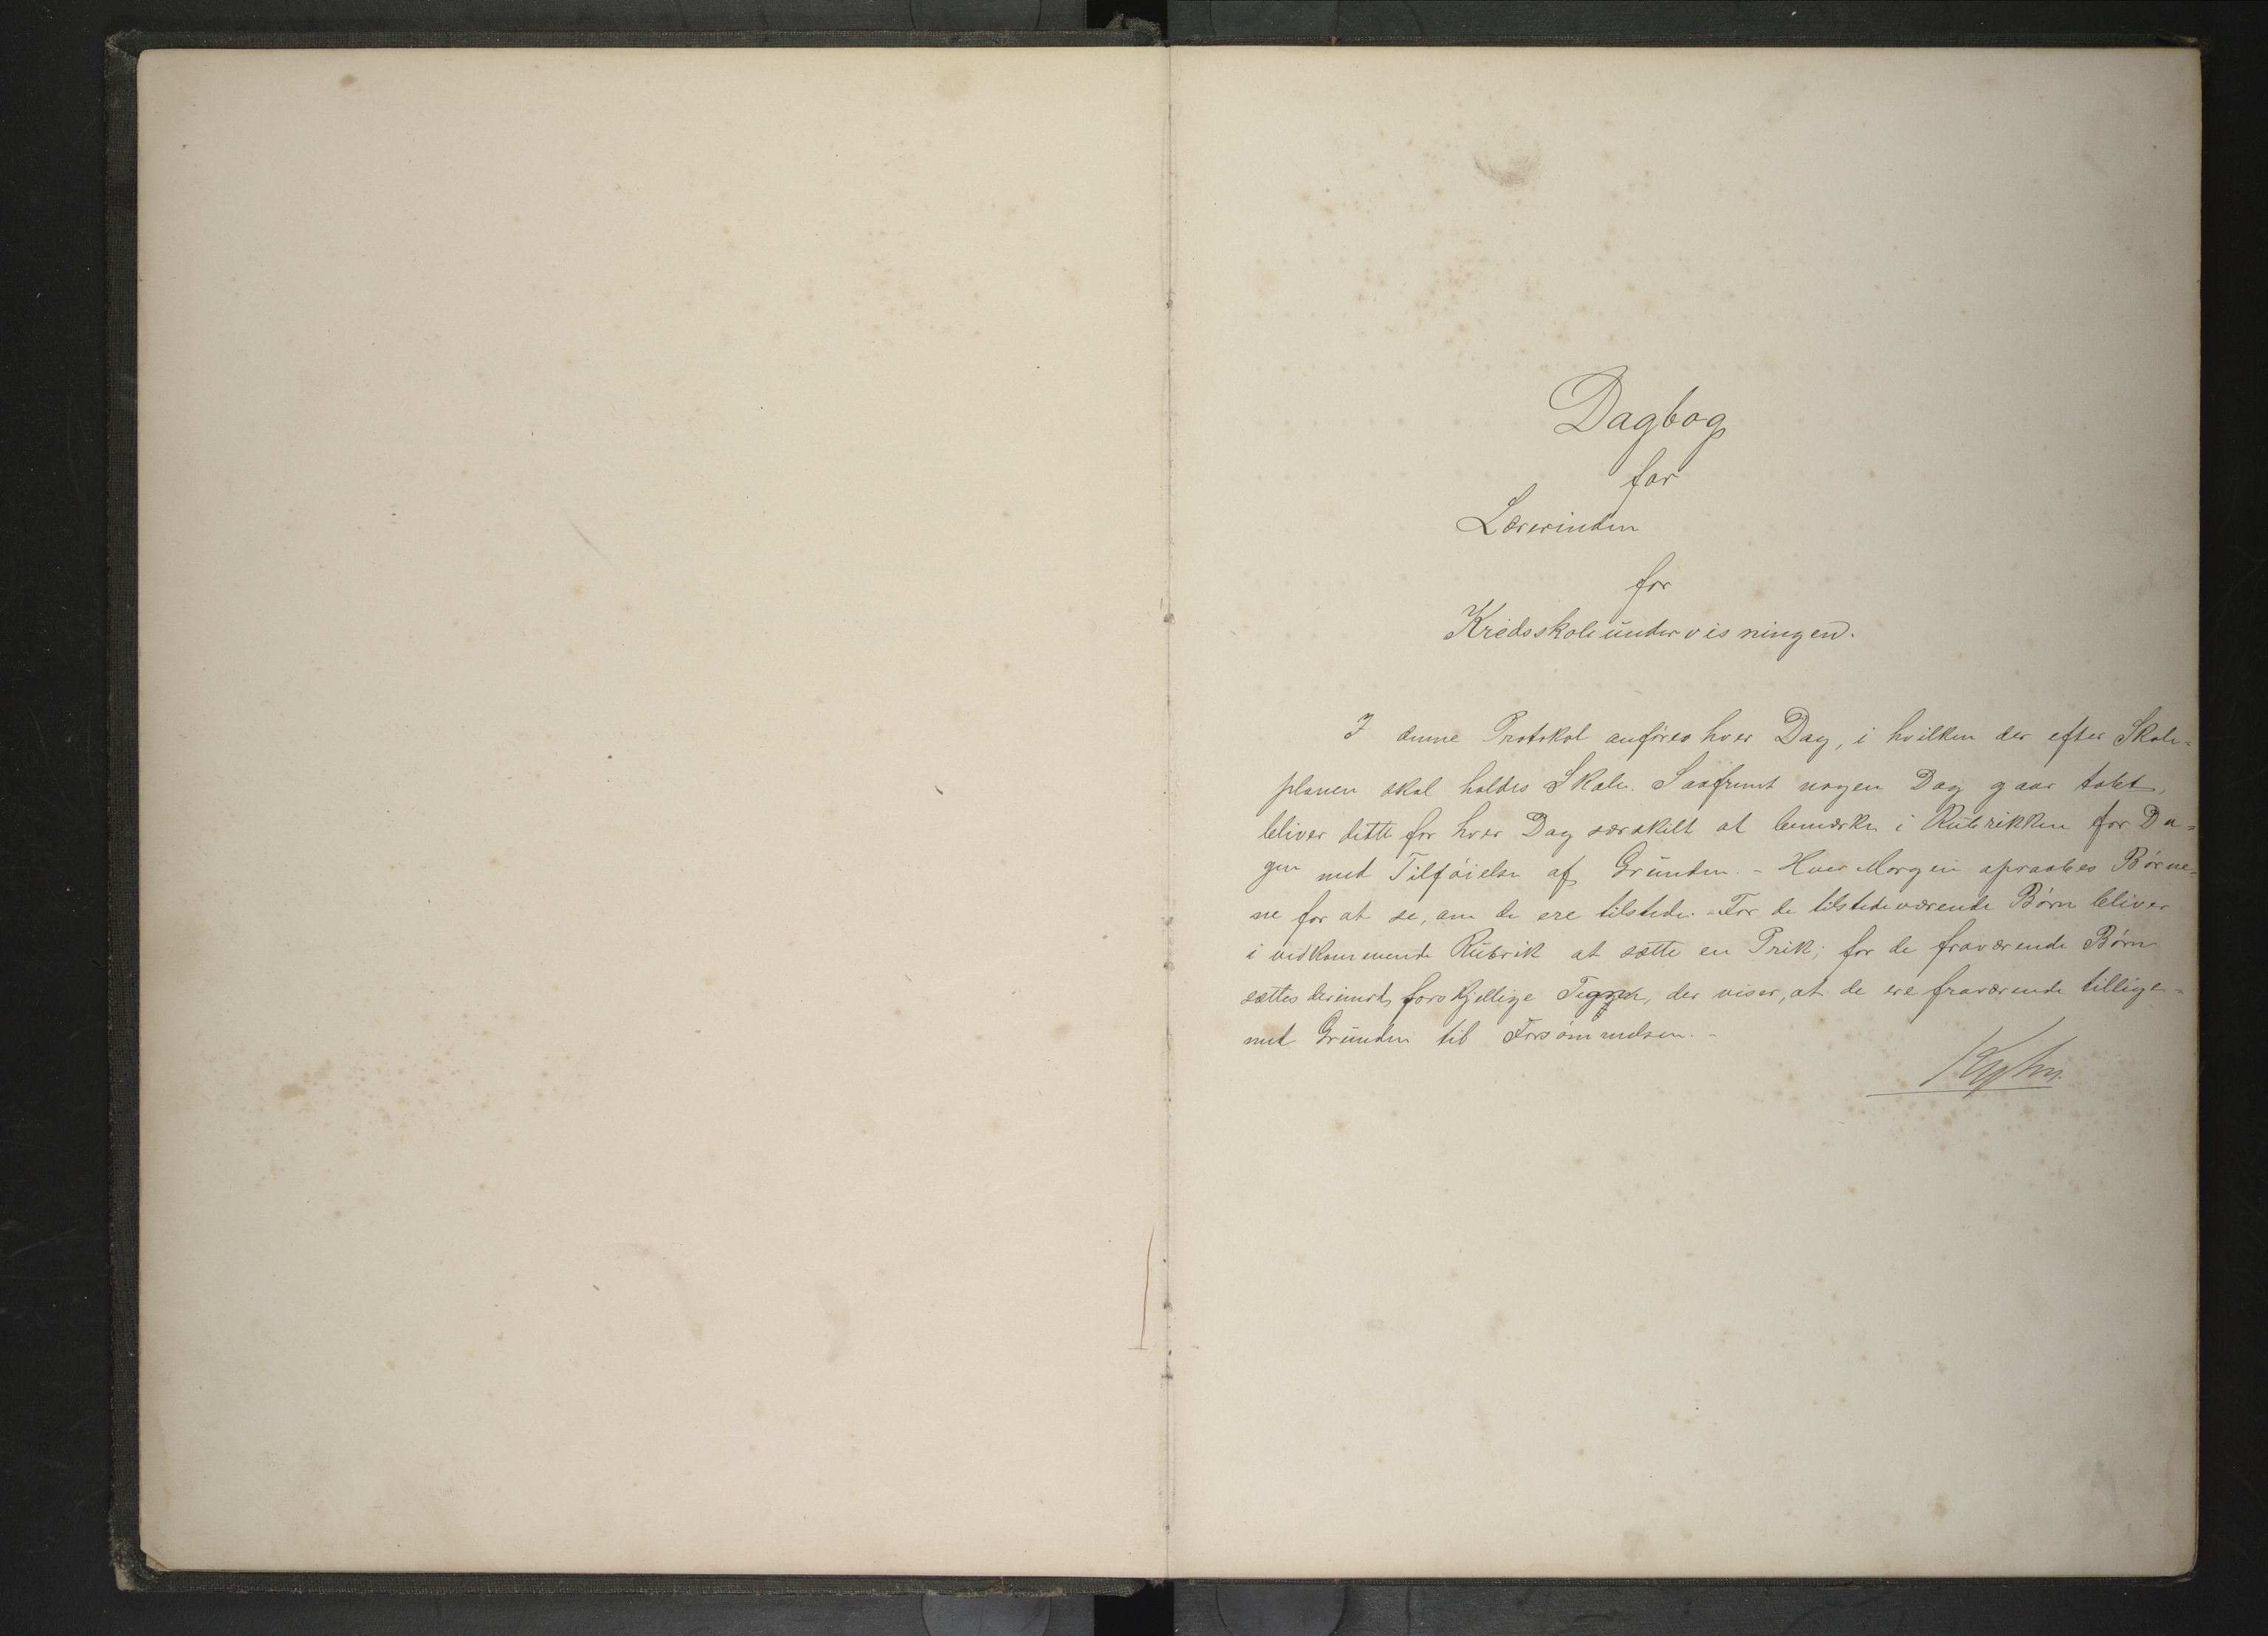 Dagbog
for
Lærerinden
for
Kredsskoleundervisningen.
I denne Protokol anføres hver Dag, i hvilken der efter Skole=
planen skal holdes Skole. Saafremt nogen Dag gaar tabt,
bliver dette for hver Dag særskilt at bemærke i Rubrikken for Da=
gen med Tilføielse af Grunden. - Hver Morgen opraabes Børne=
ne for at se, om de ere tilstede. - For de tilstedeværende Børn bliver
i vedkommende Rubrik at sætte en Prik; for de fraværende Børn
sættes derimod forskjellige Tegn, der viser, at de ere fraværende tillige=
med Grunden til Forsømmelsen. -